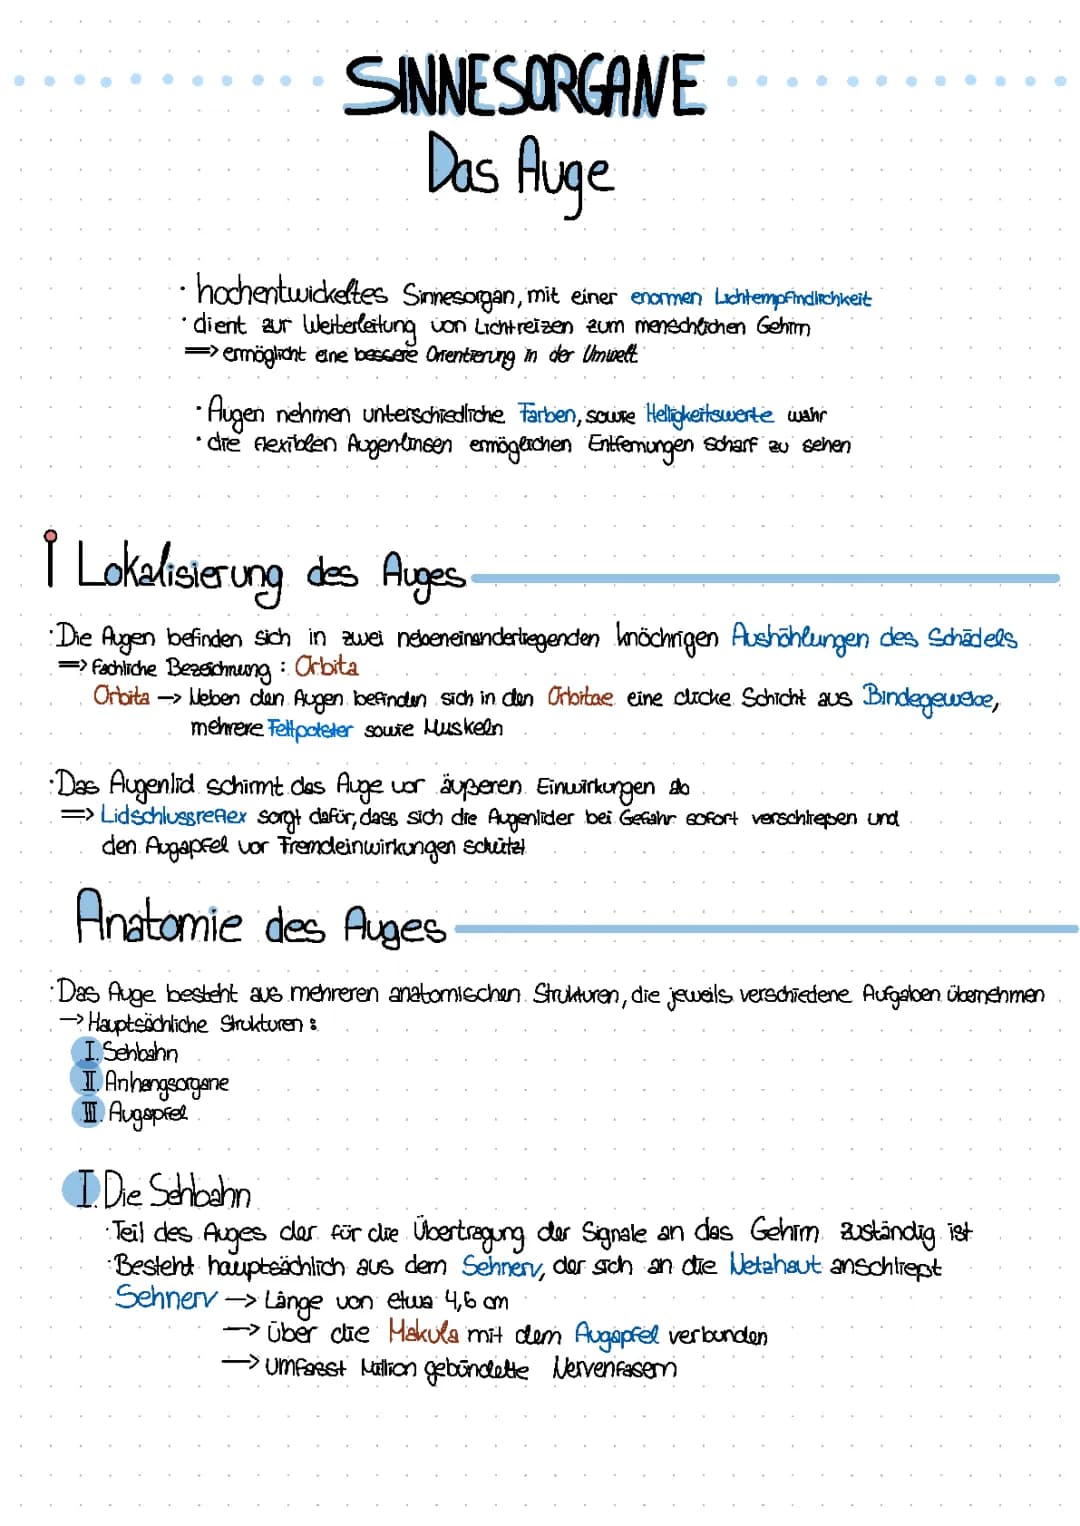 SINNESORGANE
Das Auge
· hochentwickeltes Sinnesorgan, mit einer enormen Lichtempfindlichkeit
· dient zur Weiterleitung von Lichtreizen zum menschlichen Gehirn
=> ermöglicht eine bessere Orientierung in der Umwelt
· Augen nehmen unterschiedliche Farben, sowie Helligkeitswerte wahr
· die flexiblen Augenlinsen ermöglichen Entfernungen scharf zu sehen
Lokalisierung des Auges
· Die Augen befinden sich in zwei nebeneinanderliegenden knöchrigen Aushöhlungen des Schädels
=> fachliche Bezeichnung : Orbita
Orbita -> Neben den Augen befinden sich in den Orbitae eine dicke Schicht aus Bindegewebe,
mehrere Fettpolster sowie Muskeln
· Das Augenlid schirmt das Auge vor äußeren Einwirkungen ab
=> Lidschlussreflex sorgt dafür, dass sich die Augenlider bei Gefahr sofort verschließen und
den Augapfel vor Fremdeinwirkungen schützt
Anatomie des Auges
· Das Auge besteht aus mehreren anatomischen Strukturen, die jeweils verschiedene Aufgaben übernehmen
-> Hauptsächliche Strukturen :
I. Sehbahn
II. Anhangsorgane
III. Augapfel
I. Die Sehbahn
· Teil des Auges der für die Übertragung der Signale an das Gehirn zuständig ist
· Besteht hauptsächlich aus dem Sehnerv, der sich an die Netzhaut anschließt
Sehnerv -> Länge von etwa 4,6 cm
-> über die Makula mit dem Augapfel verbunden
-> umfasst Million gebündelte Nervenfasern